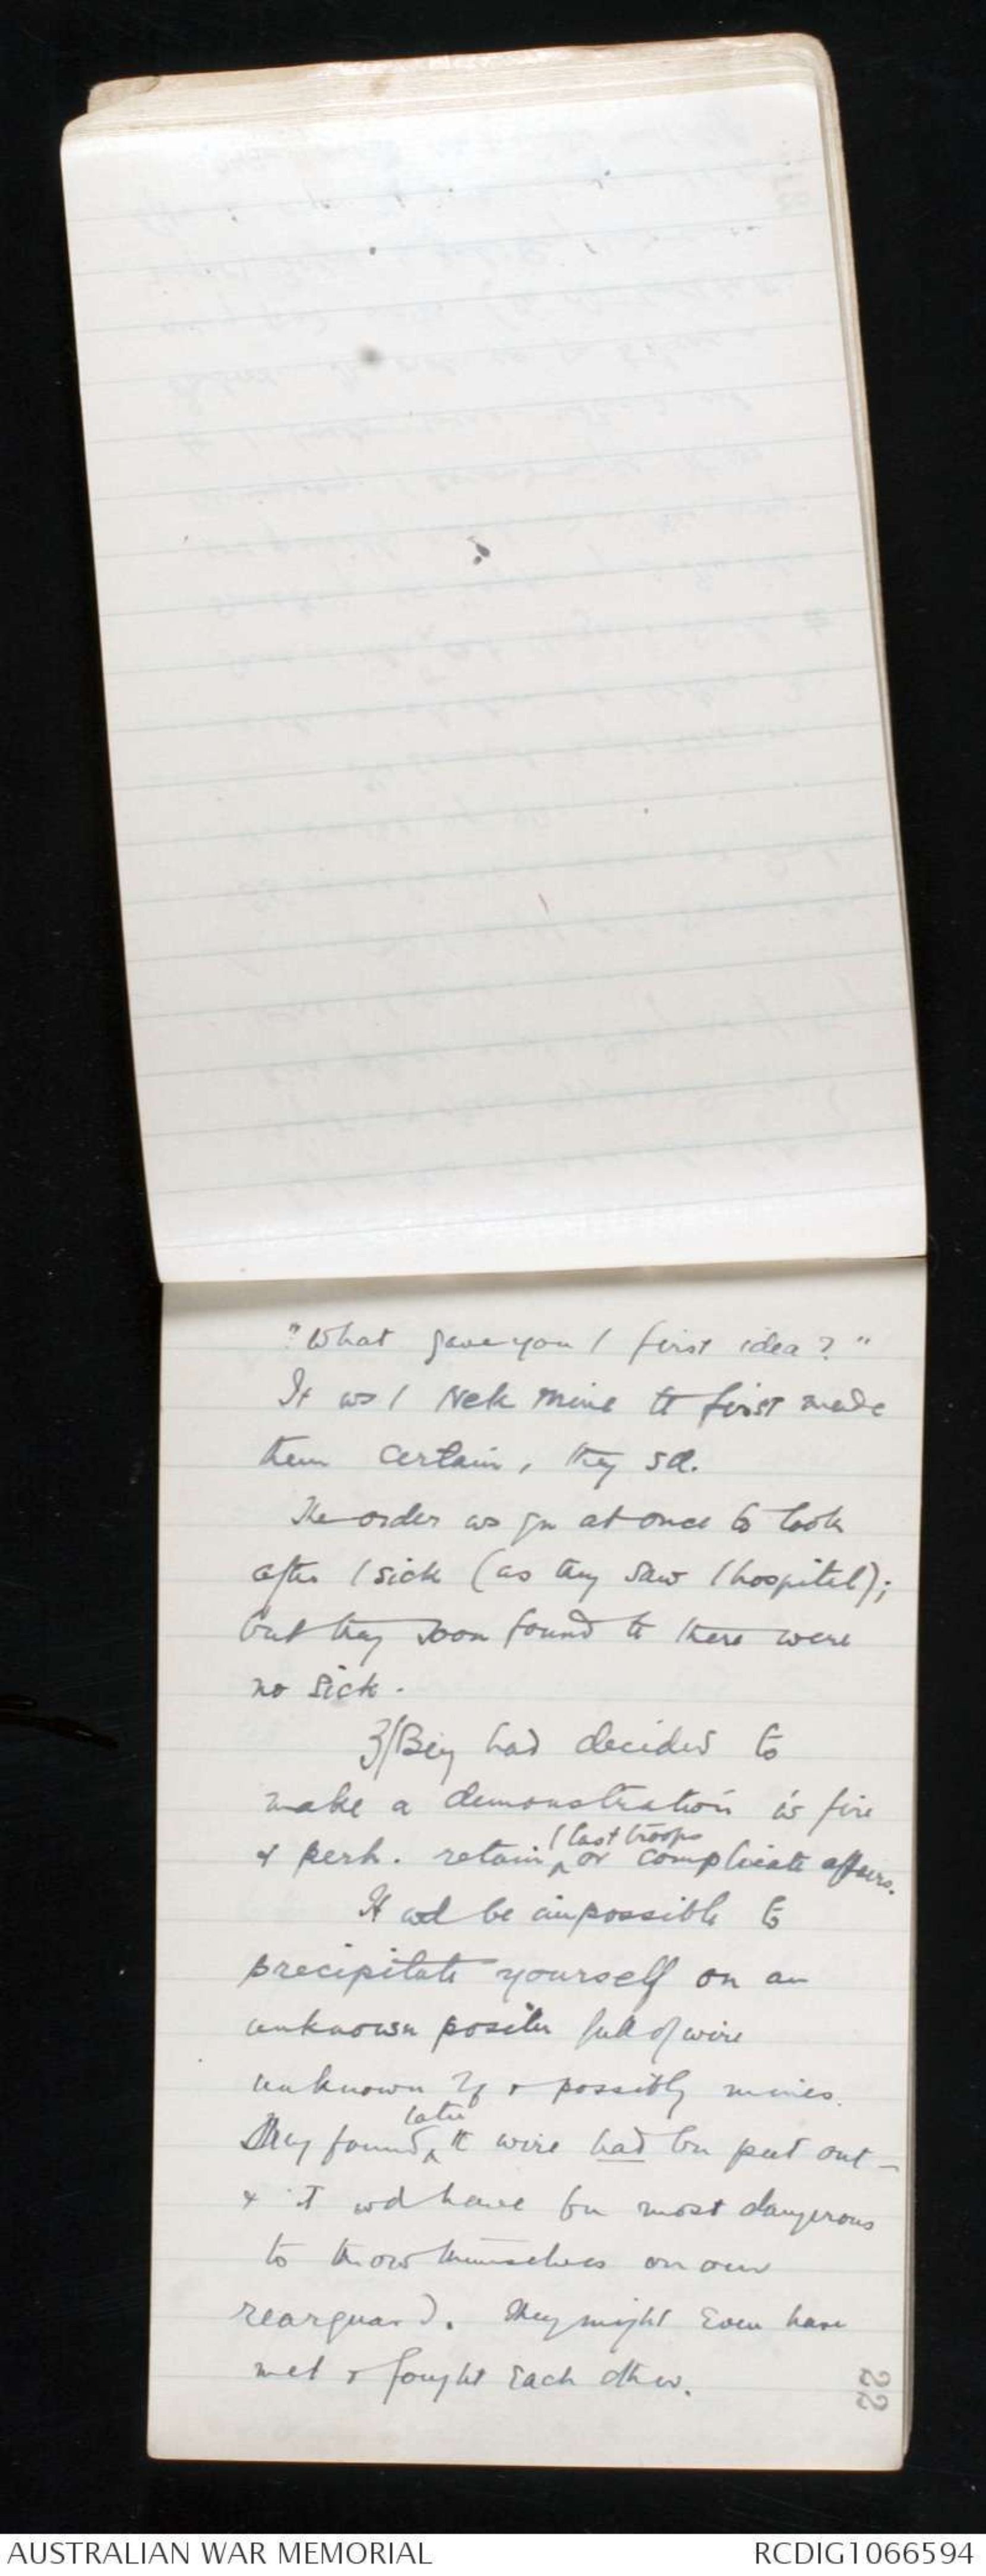 "What gave you / first idea?"
It ws / Nek mine tt first made
them certain, they sd.
The order ws gn at once to look
after / sick (as they saw / hospital);
but they soon found tt there were
no sick.
3/Beg had decided to
make a demonstration is fire
& perh. retain ^ / last troops or complicate affairs.
It wd be impossible to
precipitate yourself on an
unknown positn full of wire
unknown & possibly mines.
They found ^ later tt wire had bn put out -
& it wd have bn most dangerous
to throw themselves on our
rearguard. They might even have
met & fought each other.
22
AUSTRALIAN WAR MEMORIAL
RCDIG1066594